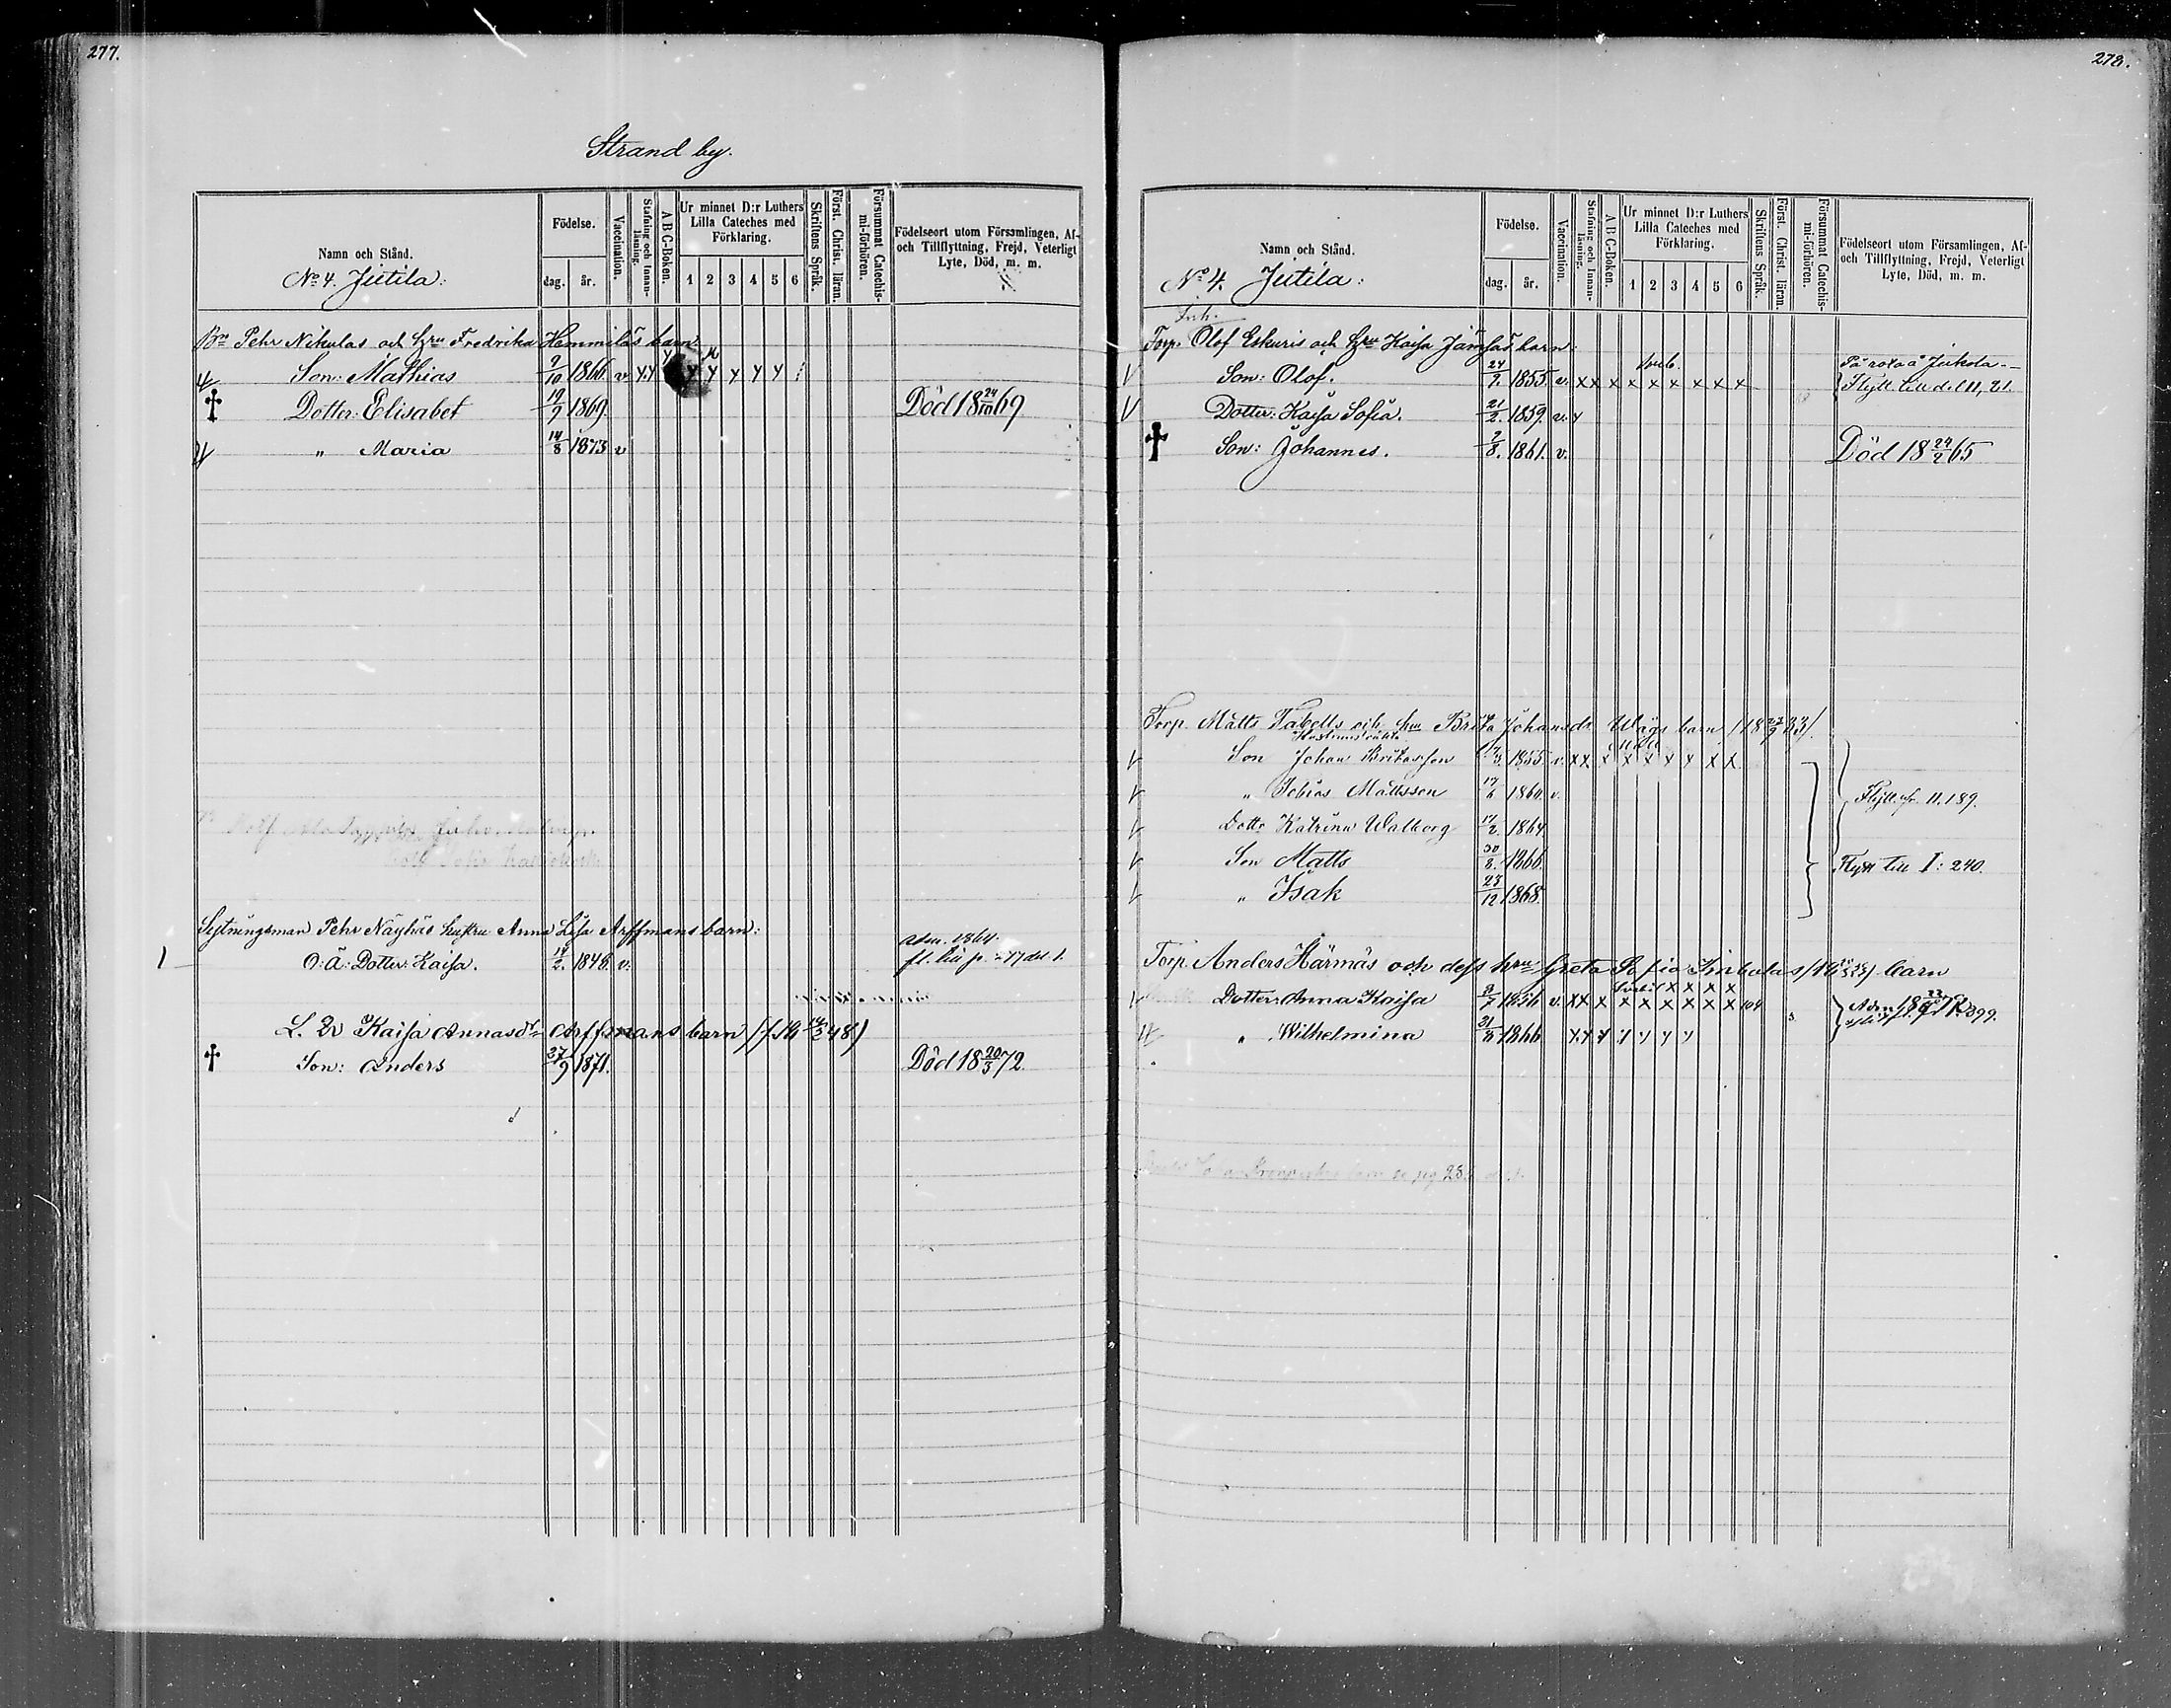 277.
Strand by.
Namn och Stånd.
Födelse.
dag. år.
Vaccination.
Stafning och Innan-läsning.
A B C-Boken.
Ur minnet D:r Luthers
Lilla Cateches med
Förklaring.
1 2 3 4 5 6
Skriftens Språk.
Först. Christ. läran.
Försummat Catechis-mi-förhören.
Födelseort utom Församlingen, Af-
och Tillflyttning, Frejd, Veterligt
Lyte, Död, m. m.
No 4. Jutila:
Bn Pehr Nikulas och hru Fredrika Hemmiläs barn
Son: Mathias 9/10 1866 v y y y y y y y
Dotter: Elisabet 19/9 1869. Död 18 24/10 69.
" Maria 14/8 1873 v
Sytningsman Pehr Näyhäs hustru Anna Lisa Arffmans barn:
O: Ä: Dotter: Kaisa. 14/2. 1848. v. adm. 1864.
L. Qv Kaisa Annasdr Arffmans barn (f. 18 14/2 48)
Son: Anders 27/9 1871. Död 18 20/3 72.
278.
Namn och Stånd.
Födelse.
dag. år.
Vaccination.
Stafning och Innan-läsning.
A B C-Boken.
Ur minnet D:r Luthers
Lilla Cateches med
Förklaring.
1 2 3 4 5 6
Skriftens Språk.
Först. Christ. läran.
Försummat Catechis-mi-förhören.
Födelseort utom Församlingen, Af-
och Tillflyttning, Frejd, Veterligt
Lyte, Död, m. m.
No 4. Jutila:
Inh.
Torp. Olof Eskuris och hru Kaisa Jämsäs barn:
Son: Olof. 24/2. 1855. v. x x x x x x x x x På rota å Jukola.
Flytt. till del II, 21.
Dotter: Kaisa Sofia. 21/2. 1859. v. y
Son: Johannes. 2/8. 1861. v. Död 18 24/2 65
Torp. Matts Tabells och hru Brita Johansdr Wägs barn (18 27/9 33).
Son Johan Britasson 1855. v. x x x x x x y x x
" Tobias Mattsson 17/6 1860. v. Flytt. fr. II. 189.
Dottr Katrina Walborg 17/2. 1864.
Son Matts 30/8. 1866. Flytt till I: 240.
" Isak 27/12 1868.
Torp. Anders Härmäs och dess hru Greta Sofia barn
Dotter: Anna Kaisa 1856 v. x x x x x x x x x
" Wilhelmina 1866 y y y y y y y